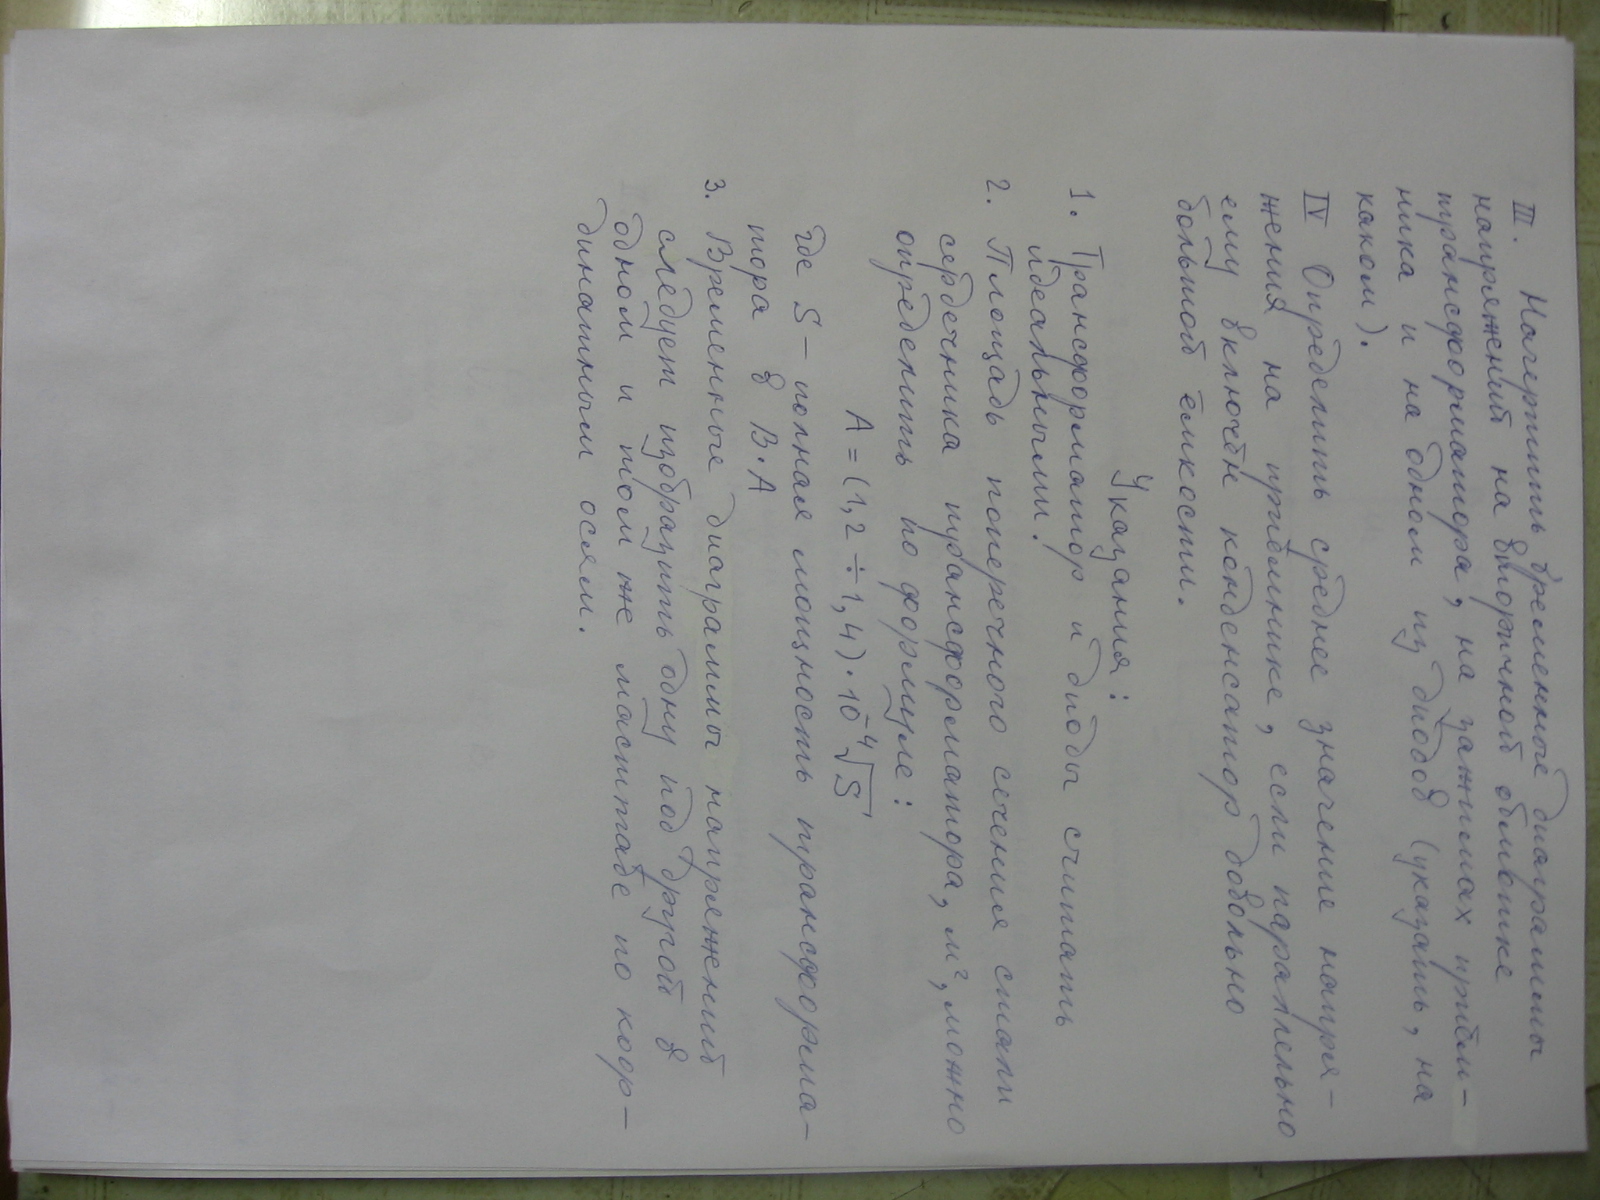 III. Начертить временные диаграммы
напряжений на вторичной обмотке
трансформатора, на зажимах приём-
ника и на одном из диодов (указать, на
каком).
IV Определить среднее значение напря-
жения на приёмнике, если параллельно
ему включён конденсатор довольно
большой ёмкости.
Указания:
1. Трансформатор и диоды считать
идеальными.
2. Площадь поперечного сечения стали
сердечника трансформатора, м², можно
определить по формуле:
A = (1,2 ÷ 1,4) · 10⁻⁴ √S
где S – полная мощность трансформа-
тора в В·А
3. Временные диаграммы напряжений
следует изобразить одну под другой в
одном и том же масштабе по коор-
динатным осям.